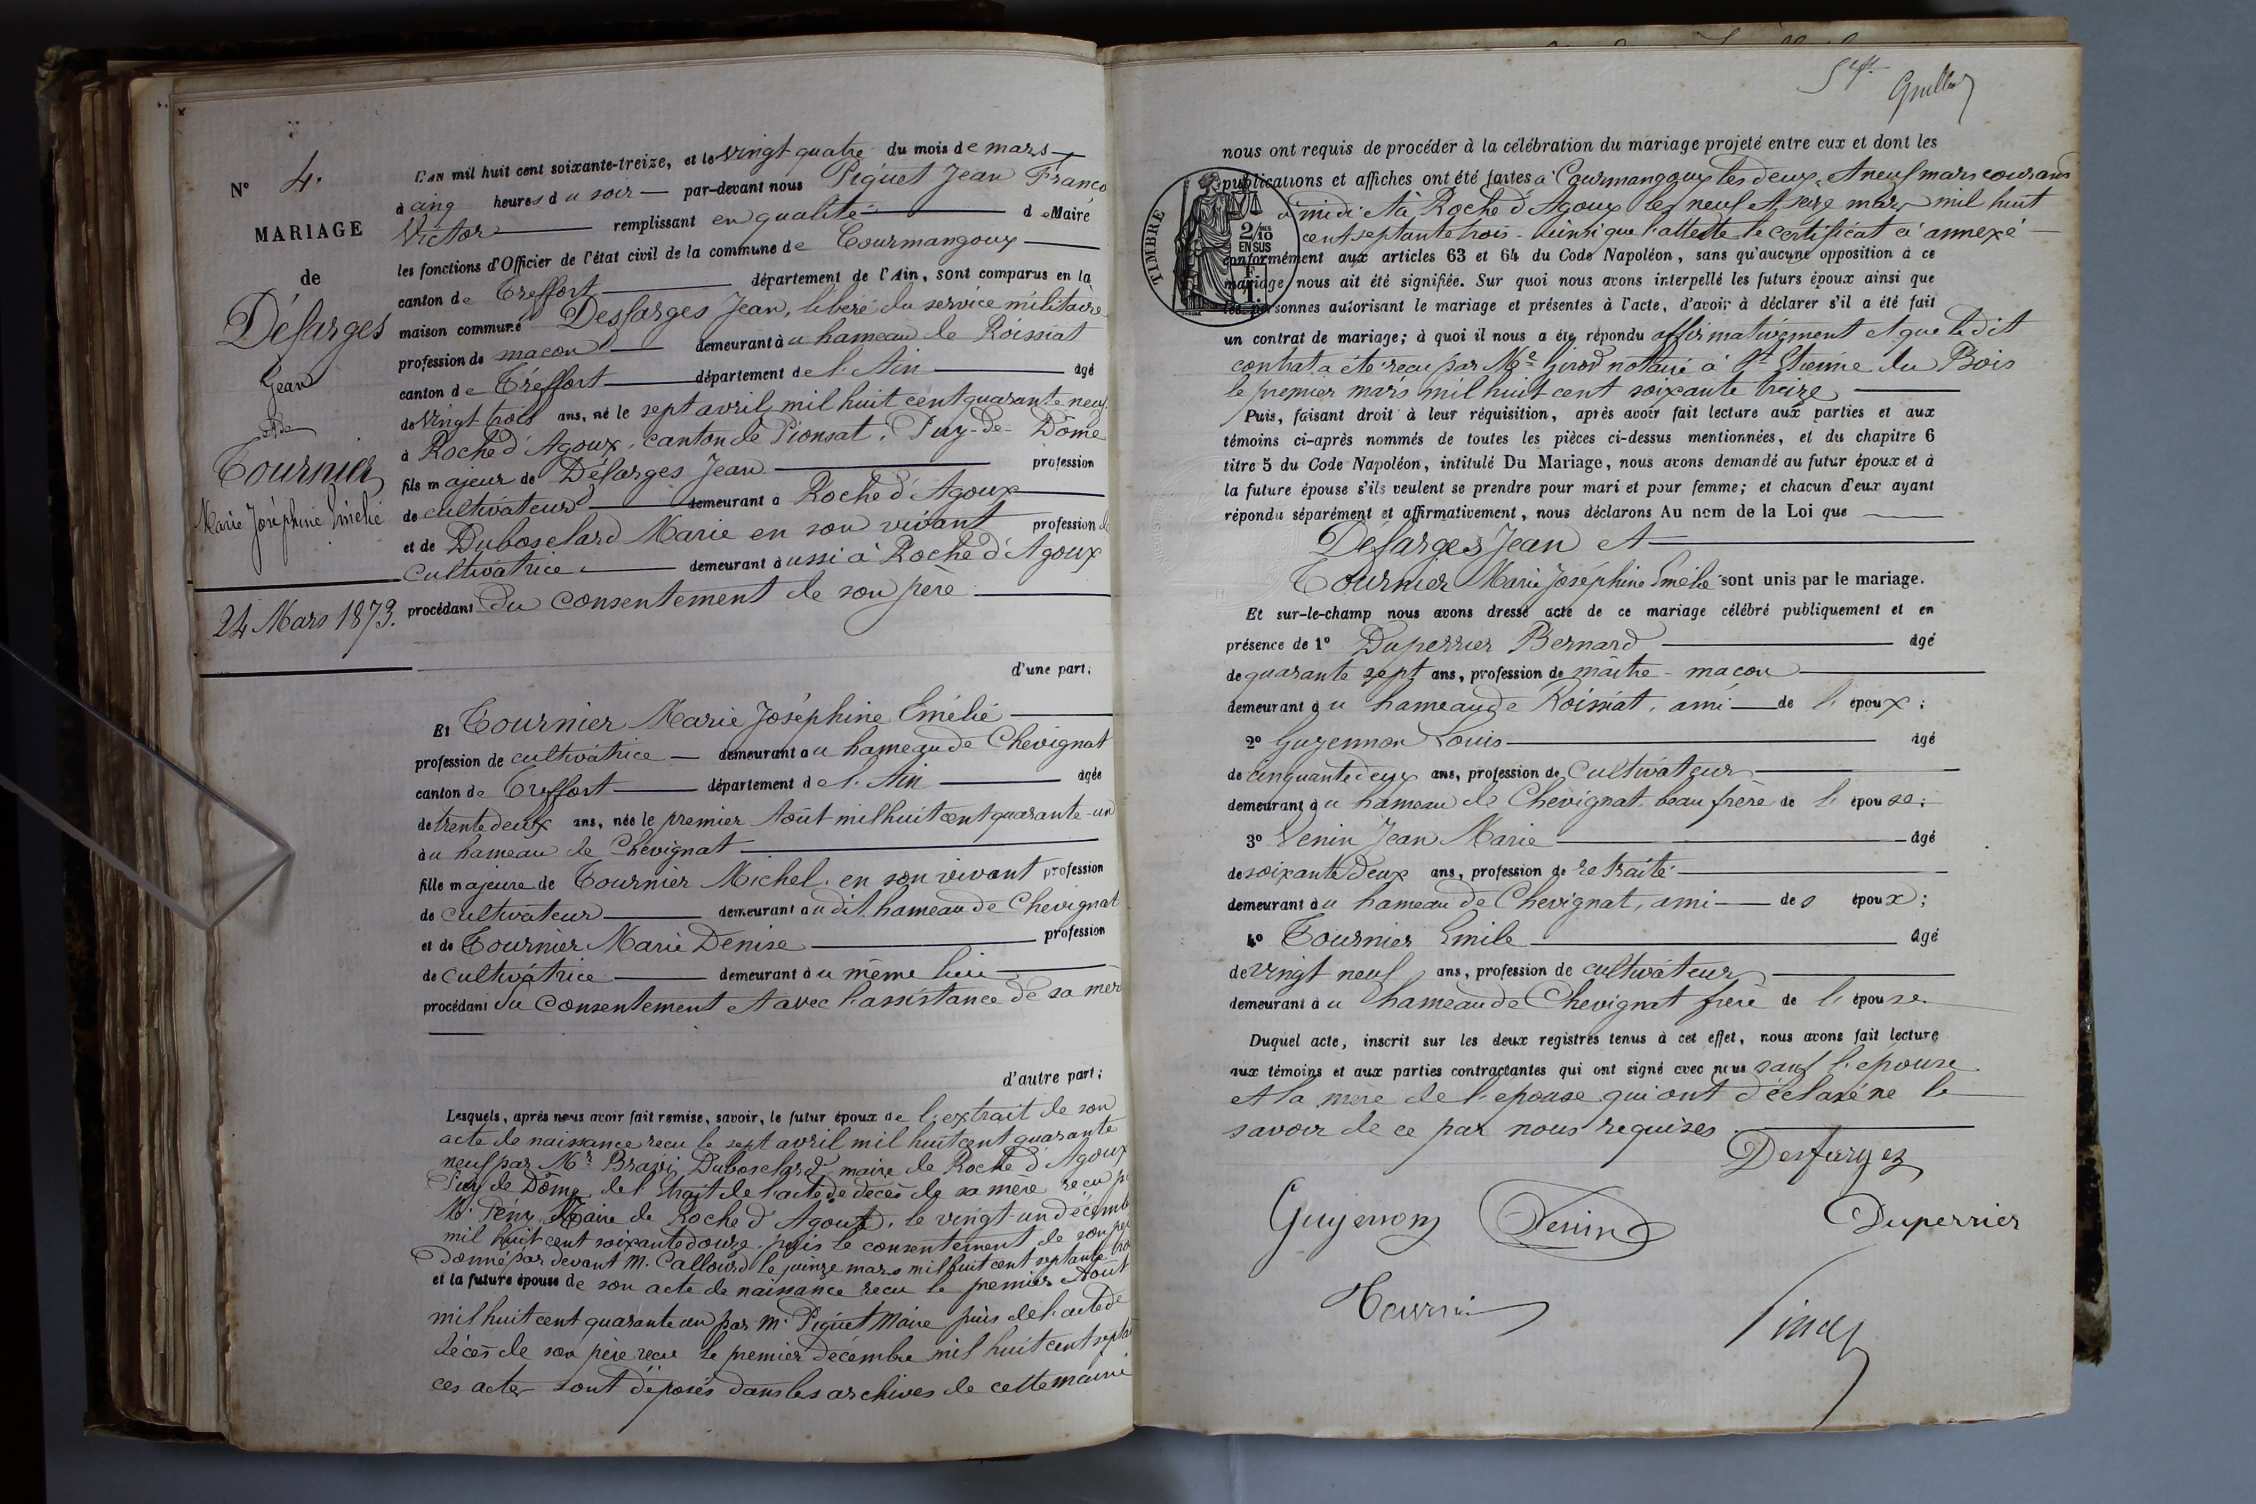 N° 4.
MARIAGE
de
Défarges
Jean
et de
Tournier
Marie Joséphine Emélie
24 Mars 1873.
L'an mil huit cent soixante-treize, et le vingt quatre du mois de mars
à cinq heures du soir par-devant nous Piquet Jean Franço
Victor remplissant en qualité de Maire
les fonctions d'Officier de l'état civil de la commune de Courmangoux
canton de Treffort département de l'Ain, sont comparus en la
maison commune Desfarges Jean, libéré du service militaire
profession de macon demeurant au hameau de Roissiat
canton de Treffort département de l'Ain âgé
de vingt trois ans, né le sept avril mil huit cent quarante neuf
à Roche d'Agoux, canton de Pionsat, Puy-de-Dôme
fils majeur de Défarges Jean profession
de cultivateur demeurant à Roche d'Agoux
et de Duboselard Marie en son vivant profession de
cultivatrice demeurant aussi à Roche d'Agoux
procédant du consentement de son père
d'une part;
Et Tournier Marie Joséphine Emélie
profession de cultivatrice demeurant au hameau de Chevignat
canton de Treffort département de l'Ain âgée
de trente deux ans, née le premier Août mil huit cent quarante-un
au hameau de Chevignat
fille majeure de Tournier Michel, en son vivant profession
de cultivateur demeurant au dit hameau de Chevignat
et de Tournier Marie Denise profession
de cultivatrice demeurant au même lieu
procédant du consentement et avec l'assistance de sa mère
d'autre part;
Lesquels, après nous avoir fait remise, savoir, le futur époux de l'extrait de son
acte de naissance recu le sept avril mil huit cent quarante
neuf par Mr Duboselard maire de Roche d'Agoux
Puy de Dôme, de l'extrait de l'acte de décès de sa mère recu p
M. Pény Maire de Roche d'Agoux, le vingt-un décemb
mil huit cent soixante douze, puis le consentement de son pe
donné par devant M. Callourd le quinze mars mil huit cent septante tro
et la future épouse de son acte de naissance recu le premier Août
mil huit cent quarante un par M. Piquet Maire puis de l'acte de
décès de son père recu le premier décembre mil huit cent septan
ces actes sont déposés dans les archives de cette mairie
nous ont requis de procéder à la célébration du mariage projeté entre eux et dont les
publications et affiches ont été faites à Courmangoux les deux, et neuf mars courant
à midi et à Roche d'Agoux les neuf et seize mars mil huit
cent septante trois - ainsi que l'atteste le certificat ci annexé
conformément aux articles 63 et 64 du Code Napoléon, sans qu'aucune opposition à ce
mariage nous ait été signifiée. Sur quoi nous avons interpellé les futurs époux ainsi que
les personnes autorisant le mariage et présentes à l'acte, d'avoir à déclarer s'il a été fait
un contrat de mariage; à quoi il nous a été répondu affirmativement et que le dit
contrat a été recu par Me Girod notaire à St Etienne du Bois
le premier mars mil huit cent soixante treize
TIMBRE
2/10
EN SUS
1 F
Puis, faisant droit à leur réquisition, après avoir fait lecture aux parties et aux
témoins ci-après nommés de toutes les pièces ci-dessus mentionnées, et du chapitre 6
titre 5 du Code Napoléon, intitulé Du Mariage, nous avons demandé au futur époux et à
la future épouse s'ils veulent se prendre pour mari et pour femme; et chacun d'eux ayant
répondu séparément et affirmativement, nous déclarons Au nom de la Loi que
Défarges Jean et
Tournier Marie Joséphine Emélie sont unis par le mariage.
Et sur-le-champ nous avons dressé acte de ce mariage célébré publiquement et en
présence de 1° Duperrier Bernard âgé
de quarante sept ans, profession de maître-macon
demeurant au hameau de Roissiat, ami de l'époux;
2° Guyennon Louis âgé
de cinquante deux ans, profession de cultivateur
demeurant au hameau de Chevignat, beau frère de l'épouse;
3° Venin Jean Marie âgé
de soixante deux ans, profession de retraité
demeurant au hameau de Chevignat, ami des époux;
4° Tournier Emile âgé
de vingt neuf ans, profession de cultivateur
demeurant au hameau de Chevignat frère de l'épouse.
Duquel acte, inscrit sur les deux registres tenus à cet effet, nous avons fait lecture
aux témoins et aux parties contractantes qui ont signé avec nous sauf l'épouse
et la mère de l'épouse qui ont déclaré ne le
savoir de ce par nous requises
Desfarges
Guyennon
Venin
Duperrier
Tournier